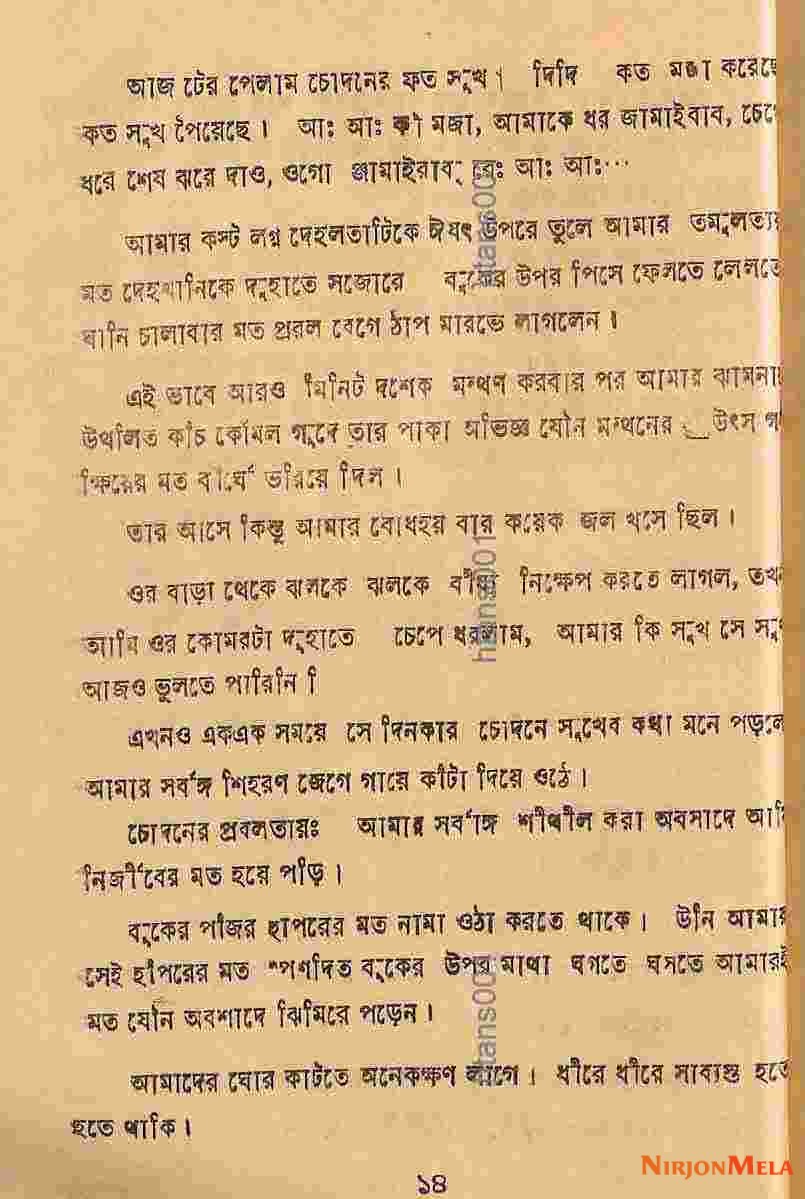 আজ টের পেলাম চোদনের ফত সুখ। দিদি কত মজা করেছে
কত সুখ পৈয়েছে। আঃ আঃ কী মজা, আমাকে ধর জামাইবাব, চেপে
ধরে শেষ ঝরে দাও, ওগো জামাইরাবু রেঃ আঃ আঃ···
আমার কস্ট লগ্ন দেহলতাটিকে ঈষৎ উপরে তুলে আমার তমুলতার
মত দেহখানিকে দুহাতে সজোরে বুকের উপর পিসে ফেলতে লেলতে
ঘানি চালাবার মত প্ররল বেগে ঠাপ মারতে লাগলেন।
এই ভাবে আরও মিনিট দশেক মন্থণ করবার পর আমার
উথলিত কচি কোমল গুদে তার পাকা অভিজ্ঞ যৌন মন্থনের উৎস
মত বীর্যে ভরিয়ে দিল।
তার আসে কিন্তু আমার বোধহয় বার কয়েক জল খসে ছিল।
ওর বাড়া থেকে ঝলকে ঝলকে বীর্য্য নিক্ষেপ করতে লাগল, তখন
আমি ওর কোমরটা দুহাতে চেপে ধরলাম, আমার কি সুখ সে সুখ
আজও ভুলতে পারিনি।
এখনও একএক সময়ে সে দিনকার চোদনে সুখেব কথা মনে পড়লে
আমার সর্বাঙ্গ শিহরণ জেগে গায়ে কাঁটা দিয়ে ওঠে।
চোদনের প্রবলতায়ঃ আমার সর্বাঙ্গ শীথীল করা অবসাদে আমি
নির্জীবের মত হয়ে পড়ি।
বুকের পাঁজর হাপরের মত নামা ওঠা করতে থাকে। উনি আমার
সেই হাঁপরের মত স্পর্ণদিত বুকের উপর মাথা ঘগতে ঘসতে আমারই
মত যৌন অবশাদে ঝিমিরে পড়েন।
আমাদের ঘোর কাটতে অনেকক্ষণ লাগে। ধীরে ধীরে সাব্যস্ত হতে
হতে থাকি।
১৪
NIRJONMELA